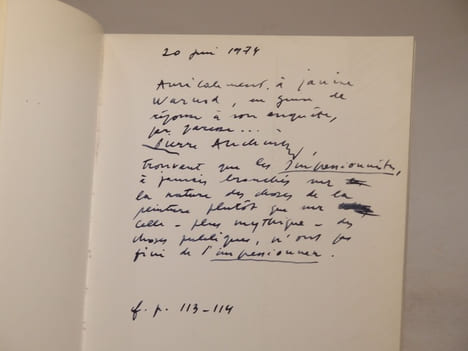 20 juin 1974
Amicalement, à Janine
Warnod, en guise de
réponse à son enquête,
par paresse...
Pierre
trouvant que les impressionnistes,
à jamais branchés sur
la nature des choses de la
peinture plutôt que sur
celle - plus mythique - des
choses publiques, n'ont pas
fini de l'impressionner.
cf. p. 113-114